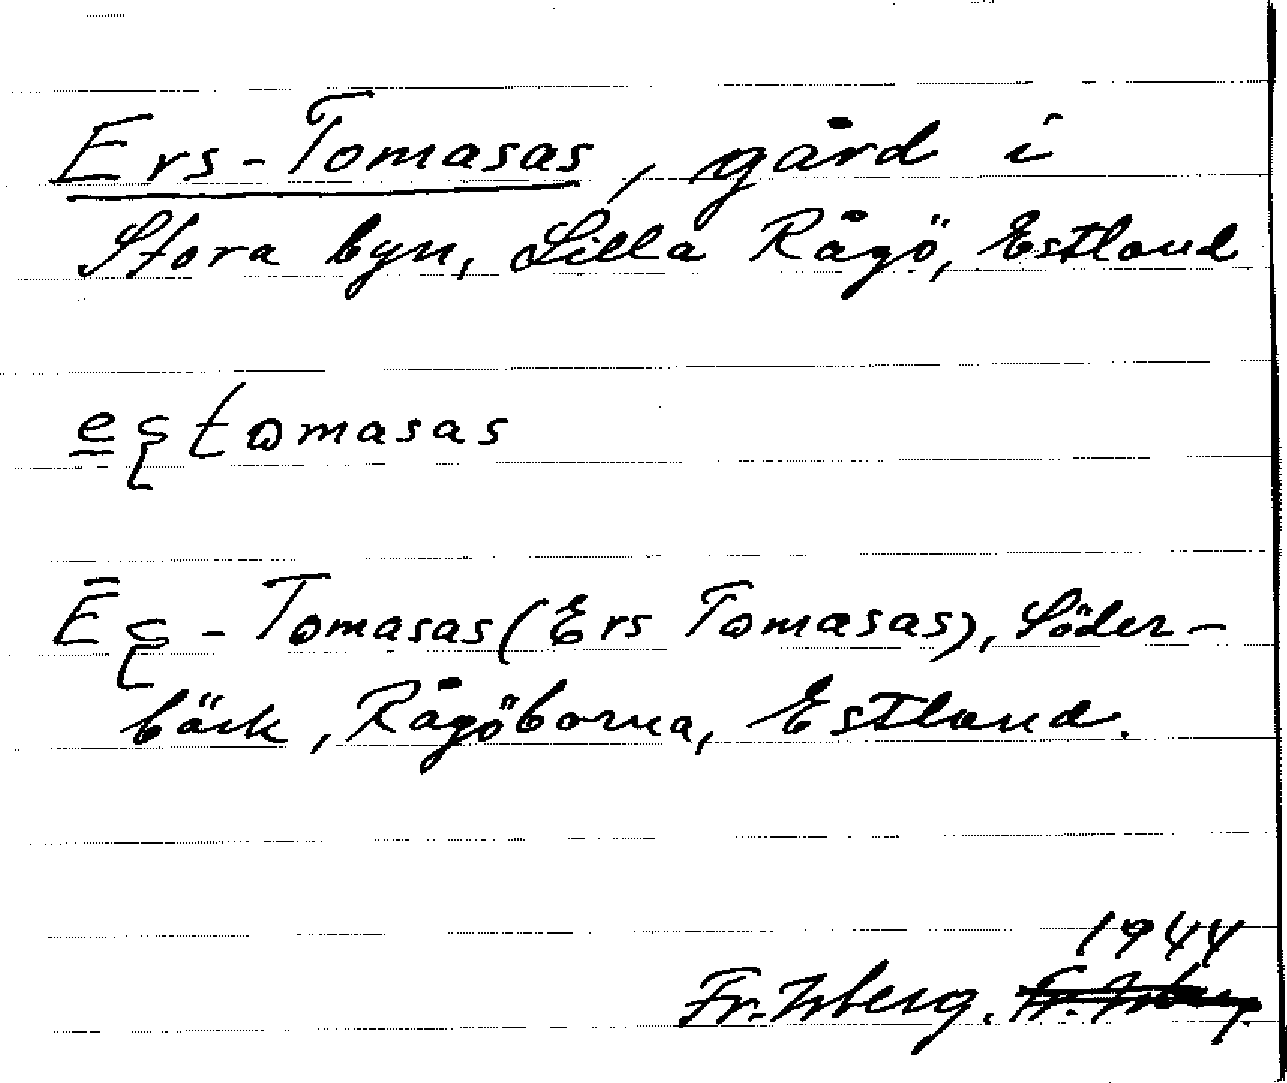 Ers-Tomasas, gård i
Stora byn, Lilla Rågö, Estland
e̳ʂtomasas
Ēʂ-Tomasas (Ers Tomasas), Söder-
bäck, Rågöborna, Estland.
1944
Fr. Isberg. Fr. Isberg